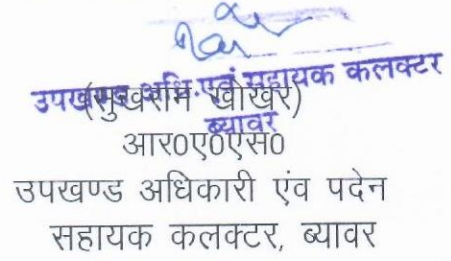 उपखण्ड अधि.एवं सहायक कलक्टर
(सुखराम खोखर)
ब्यावर
आर0ए0एस0
उपखण्ड अधिकारी एंव पदेन
सहायक कलक्टर, ब्यावर